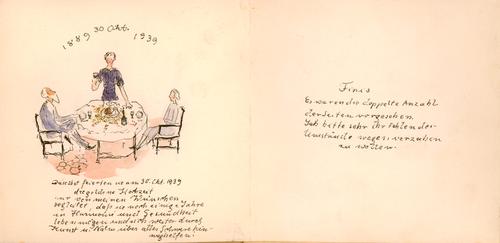 1889 30 Okt. 1939
feierten sie am 30. Okt. 1939
die goldne Hochzeit
nur von meinen Wünschen
begleitet, dass sie noch einige Jahre
in Harmonie und Gesundheit
leben mögen und sich weiter durch
Kunst u. Natur über alles Schwere hin-
weghelfen.
Finis
Es war en die doppelte Anzahl
der Seiten vorgesehen.
Ich bitte sehr ihr fehlen der
Umstände wegen verzeihen
zu wollen.